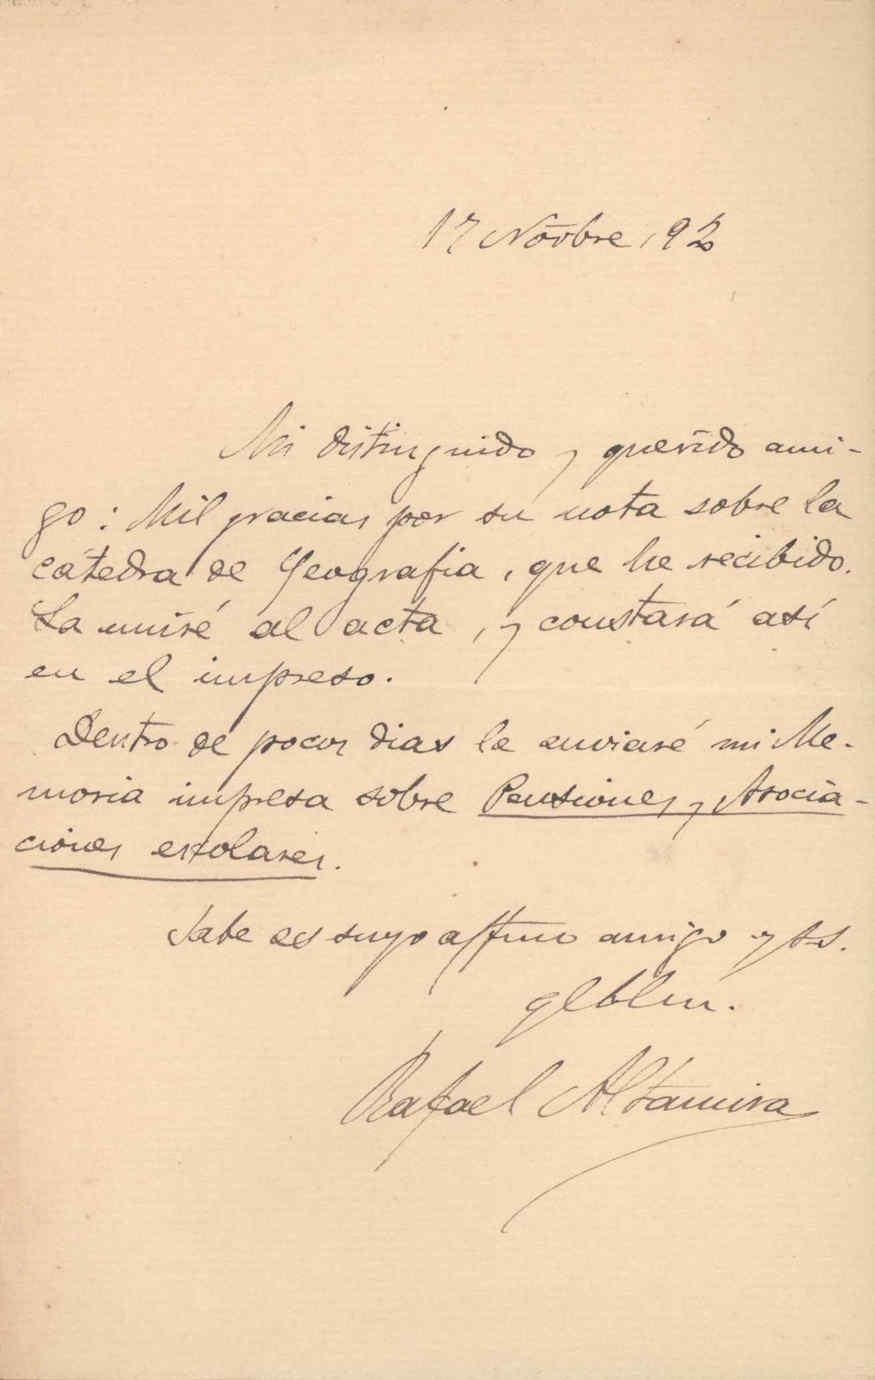 17 Novbre, 92
Mi distinguido y querido ami-
go: Mil gracias por su nota sobre la
cátedra de Geografia, que he recibido.
La uniré al acta, y constará así
en el impreso.
Dentro de pocos dias le enviaré mi Me-
moria impresa sobre Pensiones y Asocia-
ciones escolares.
Sabe es suyo affmo amigo y ss.
qlblm.
Rafael Altamira